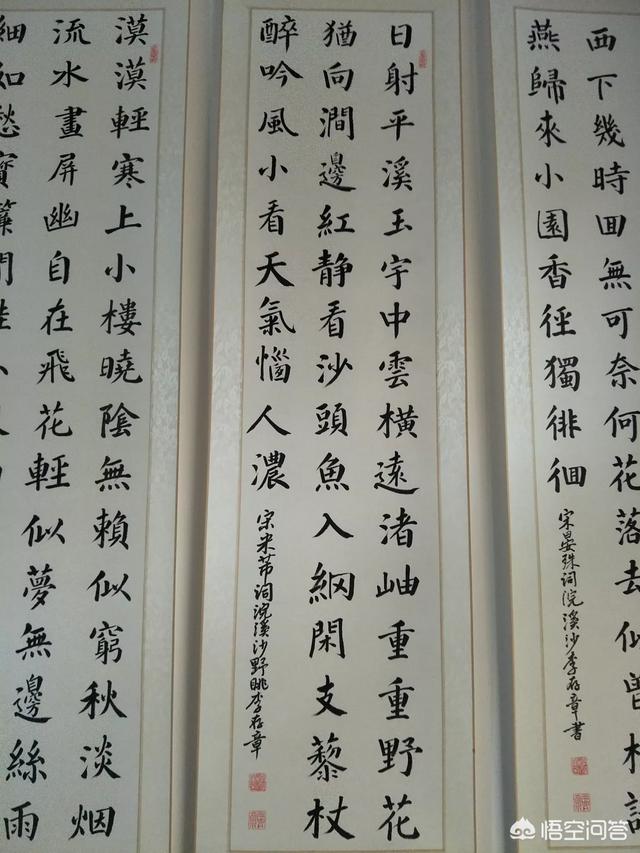 西下幾時回無可奈何花落去似曾相
燕歸來小園香徑獨徘徊
宋晏殊詞浣溪沙李存章書
日射平溪玉宇中雲橫遠渚岫重重野花
猶向澗邊紅静看沙頭魚入網閑支藜杖
醉吟風小看天氣惱人濃
宋米芾詞浣溪沙野眺李存章
漠漠輕寒上小樓曉陰無賴似窮秋淡烟
流水畫屏幽自在飛花輕似夢無邊絲雨
細如愁寶簾閒
悟空问答